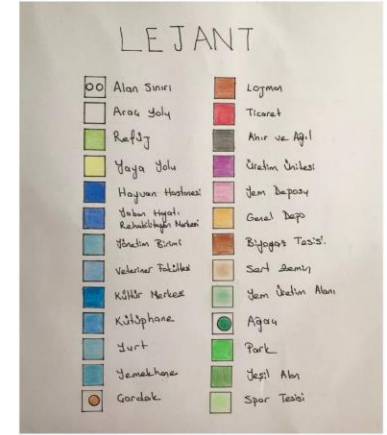 LEJANT
Alan Sınırı
Araç Yolu
Refüj
Yaya Yolu
Hayvan Hastanesi
Yaban Hayatı
Rehabilitasyon Merkezi
Yönetim Birimi
Veteriner Fakültesi
Kültür Merkez
Kütüphane
Yurt
Yemekhane
Çardak
Lojman
Ticaret
Ahır ve Ağıl
Üretim Ünitesi
Yem Deposu
Genel Depo
Biyogaz Tesisi
Sert Zemin
Yem Üretim Alanı
Ağaç
Park
Yeşil Alan
Spor Tesisi